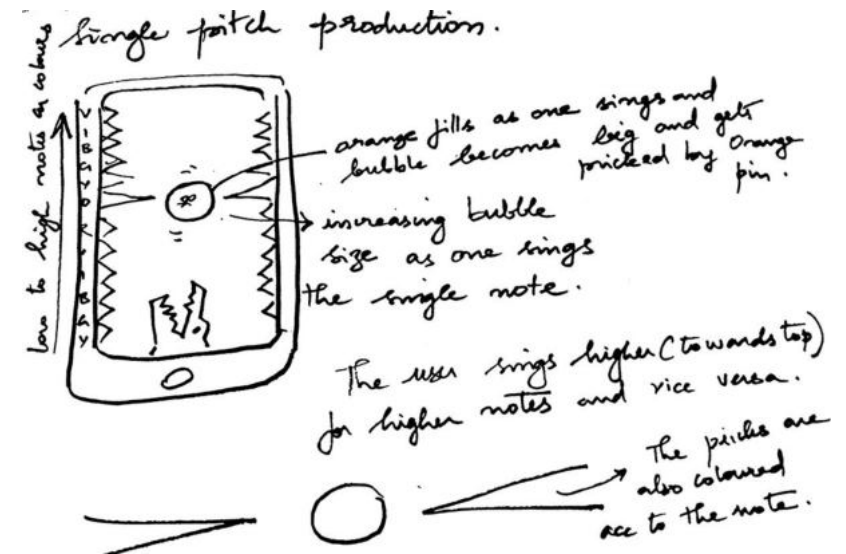 single pitch production.
low to high notes as colours
V
I
B
G
Y
O
R
V
I
B
G
Y
orange fills as one sings and
bubble becomes big and gets
pricked by Orange
pin.
increasing bubble
size as one sings
the single note.
The user sings higher (towards top)
for higher notes and vice versa.
The pricks are
also coloured
acc to the note.